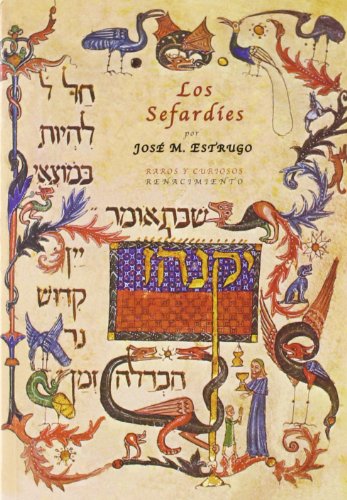 Los
Sefardíes
por
JOSÉ M. ESTRUGO
RAROS Y CURIOSOS
RENACIMIENTO
חל ל
להיות
במוצאי
שבת אומר
יקנהז
יין
קדוש
נר
הבדלה זמן